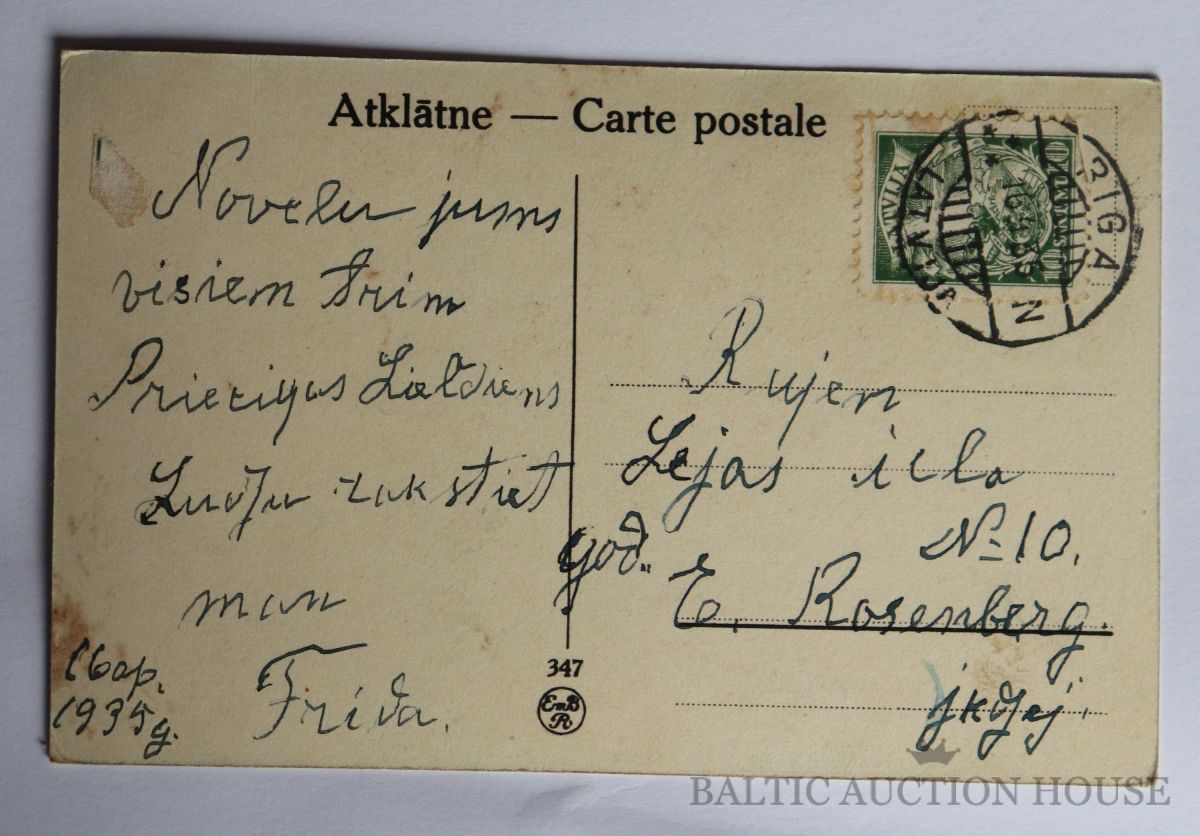 Atklātne — Carte postale
Novelu jums
visiem trim
Priecigas Lieldienas
Ludzu rakstiet
man
Frida.
16 ap.
1935 g.
347
EmB
R
LATVIJA
RIGA
LATVIJA
N
Rujen
Lejas iela
№ 10.
god.
E. Rosenberg.
jkdzej.
BALTIC AUCTION HOUSE